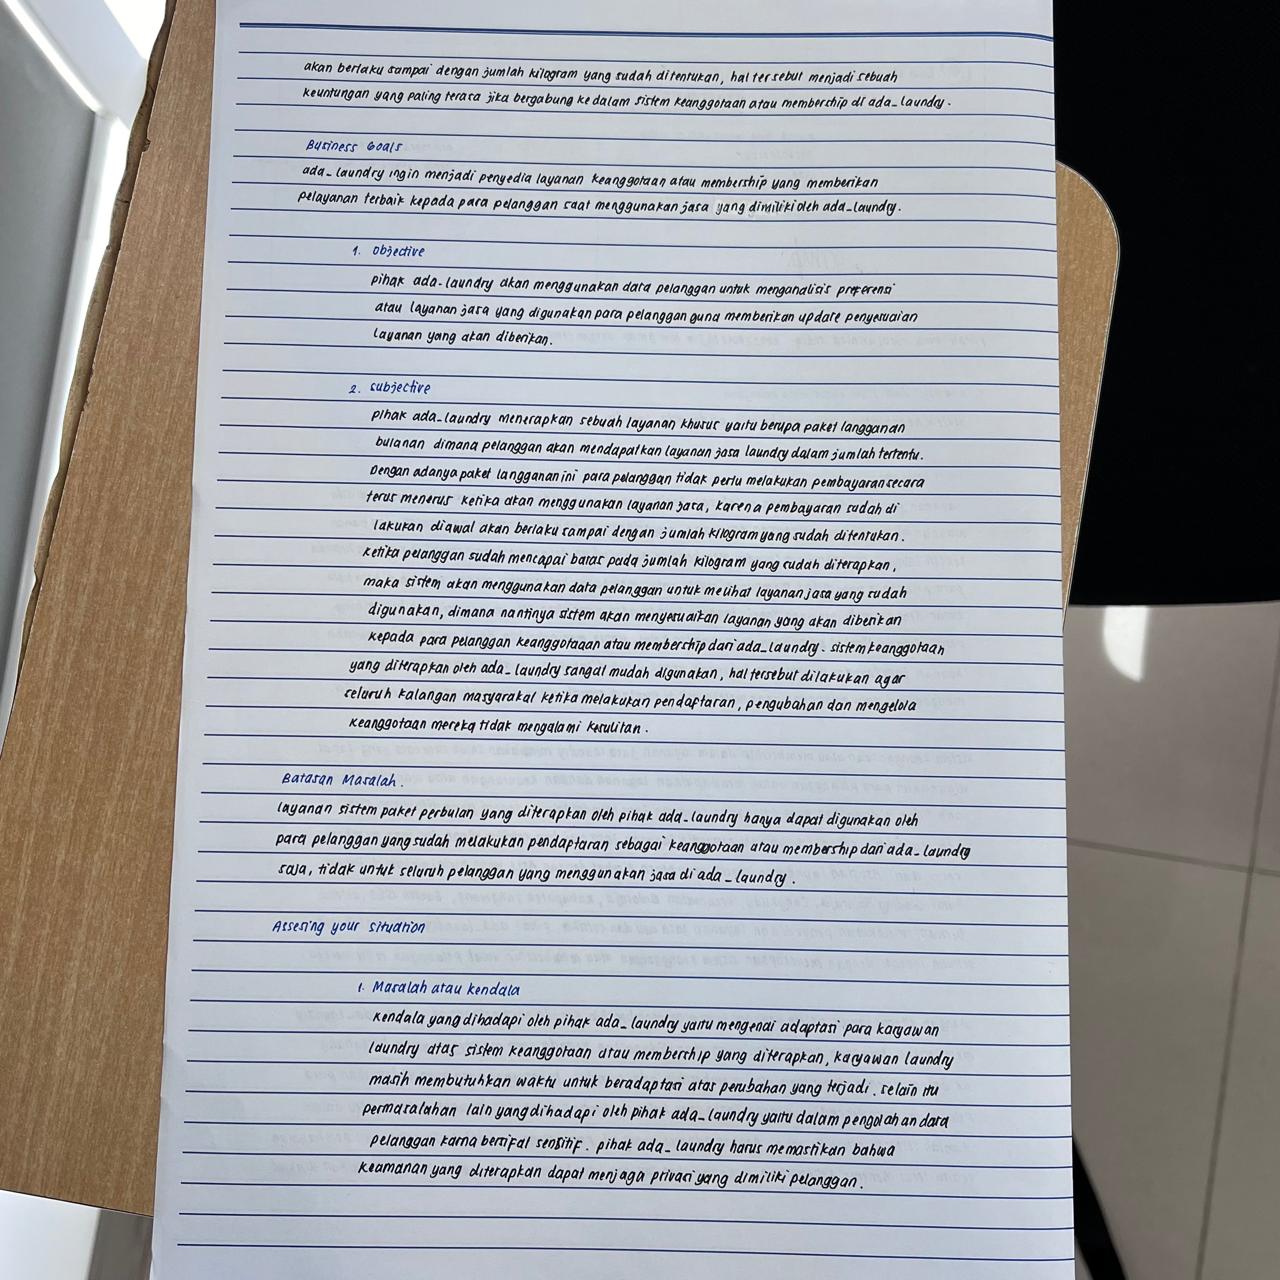 akan berlaku sampai dengan jumlah kilogram yang sudah ditentukan, hal tersebut menjadi sebuah
keuntungan yang paling terasa jika bergabung ke dalam sistem keanggotaan atau membership di ada_laundry.
Business Goals
ada_laundry ingin menjadi penyedia layanan keanggotaan atau membership yang memberikan
pelayanan terbaik kepada para pelanggan saat menggunakan jasa yang dimiliki oleh ada_laundry.
1. Objective
pihak ada_laundry akan menggunakan data pelanggan untuk menganalisis preferensi
atau layanan jasa yang digunakan para pelanggan guna memberikan update penyesuaian
layanan yang akan diberikan.
2. subjective
pihak ada_laundry menerapkan sebuah layanan khusus yaitu berupa paket langganan
bulanan dimana pelanggan akan mendapatkan layanan jasa laundry dalam jumlah tertentu.
Dengan adanya paket langganan ini para pelanggan tidak perlu melakukan pembayaran secara
terus menerus ketika akan menggunakan layanan jasa, karena pembayaran sudah di
lakukan diawal akan berlaku sampai dengan jumlah kilogram yang sudah ditentukan.
ketika pelanggan sudah mencapai batas pada jumlah kilogram yang sudah diterapkan,
maka sistem akan menggunakan data pelanggan untuk melihat layanan jasa yang sudah
digunakan, dimana nantinya sistem akan menyesuaikan layanan yang akan diberikan
kepada para pelanggan keanggotaan atau membership dari ada_laundry. sistem keanggotaan
yang diterapkan oleh ada_laundry sangat mudah digunakan, hal tersebut dilakukan agar
seluruh kalangan masyarakat ketika melakukan pendaftaran, pengubahan dan mengelola
keanggotaan mereka tidak mengalami kesulitan.
Batasan Masalah.
layanan sistem paket perbulan yang diterapkan oleh pihak ada_laundry hanya dapat digunakan oleh
para pelanggan yang sudah melakukan pendaftaran sebagai keanggotaan atau membership dari ada_laundry
saja, tidak untuk seluruh pelanggan yang menggunakan jasa di ada_laundry.
Assesing your situation
1. Masalah atau kendala
kendala yang dihadapi oleh pihak ada_laundry yaitu mengenai adaptasi para karyawan
laundry atas sistem keanggotaan atau membership yang diterapkan, karyawan laundry
masih membutuhkan waktu untuk beradaptasi atas perubahan yang terjadi. selain itu
permasalahan lain yang dihadapi oleh pihak ada_laundry yaitu dalam pengolahan data
pelanggan karna bersifat sensitif. pihak ada_laundry harus memastikan bahwa
keamanan yang diterapkan dapat menjaga privasi yang dimiliki pelanggan.